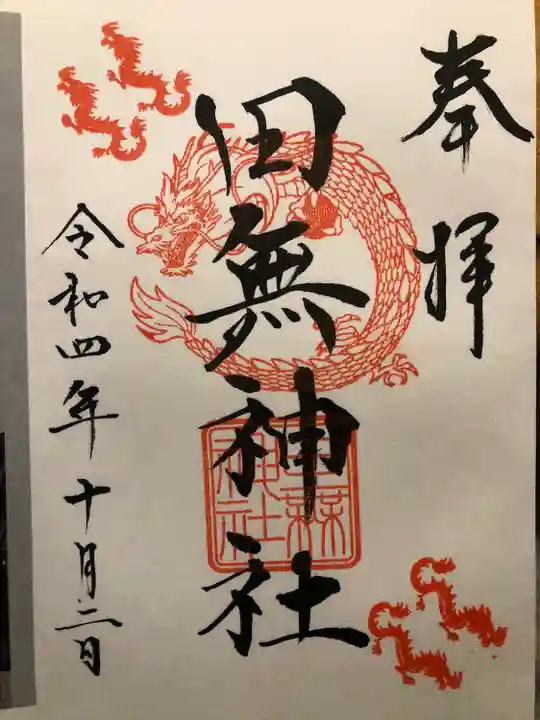 奉拝
田無神社
田無神社
令和四年十月二日